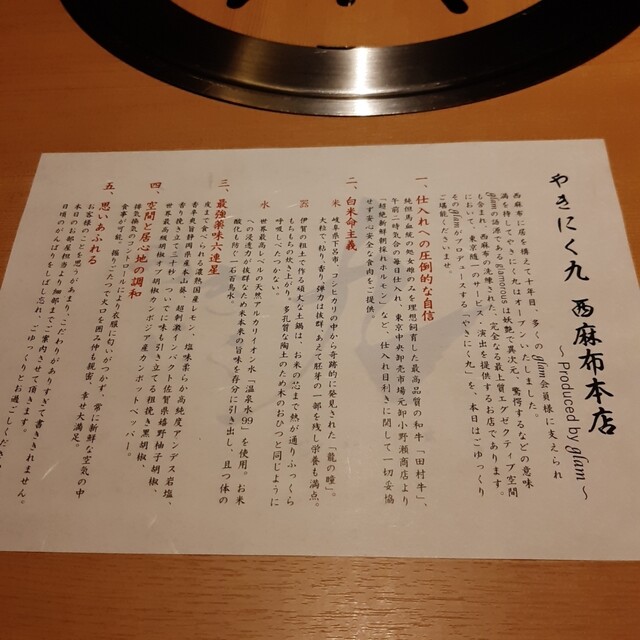 やきにく九 西麻布本店
～Produced by glam～
西麻布に居を構えて十年目、多くのglam会員様に支えられ
満を持してやきにく九はオープンいたしました。
glamの語源であるglamorousは妖艶で異次元、驚愕するなどの意味
も含まれ、西麻布の洗練された、完全なる最上質エグゼクティブ空間
において、東京随一のサービス、演出を提供するお店であります。
そのglamがプロデュースする「やきにく九」を、本日はごゆっくり
ご堪能くださいませ。
一、仕入れへの圧倒的な自信
純但馬血統の処女雌のみを理想飼育した最高品質の和牛「田村牛」、
午前二時気合の毎日仕入れ、東京中央卸売市場元卸小野瀬商店より
「超絶新鮮朝採れホルモン」など、仕入れ目利きに関して一切妥協
せず安心安全な食肉をご提供。
二、白米命主義
米 岐阜県下呂市、コシヒカリの中から奇跡的に発見された「龍の瞳」。
大粒で粘り、香り、弾力は抜群、あえて胚芽の一部を残し栄養も満点。
伊賀の粗土で作る頑丈な土鍋は、お米の芯まで熱が通りふっくら
もちもちの炊き上がり。多孔質な陶土のため木のおひつと同じように
呼吸しべたつかない。
水 世界最高レベルの天然アルカリイオン水「温泉水99」を使用。お米
への浸透力が抜群なため米本来の旨味を存分に引き出し、且つ体の
酸化も防ぐ一石百鳥水。
三、最強薬味六連星
皮まで食べられる濃熟国産レモン、塩味柔らか高純度アンデス岩塩、
香り爽快静岡県産本山葵、超刺激インパクト佐賀県嬉野柚子胡椒、
香り挽き立て三十秒、ついでに味も引き立てる粗挽き黒胡椒、
世界最高峰胡椒オブ胡椒カンボジア産カンポットペッパー。
四、空間と居心地の調和
排気換気のコントロールにより衣服に匂いがつかず、常に新鮮な空気の中
食事が可能。掘りごたつで火を囲み仲も親密、幸せ大満足。
五、思いあふれる
お客様のことを思うがあまり、こだわりがありすぎて書ききれません。
本日のお部屋担当より細部までご案内させて頂きます。
日頃のがんばりをしばし忘れ、ごゆっくりとお過ごしください